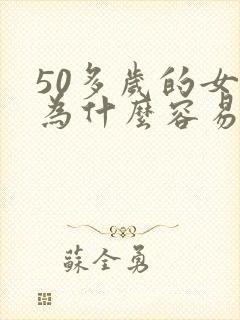 50多歲的女
為什麼容易
蘇全勇